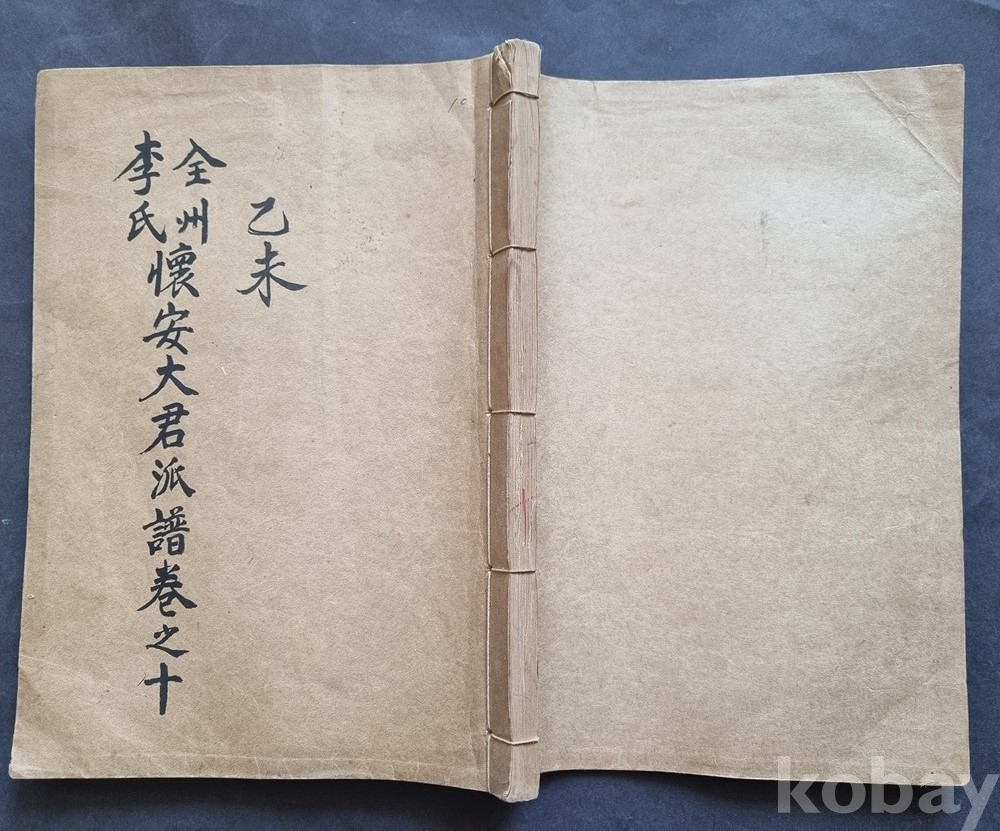 乙未
全州
李氏
懷安大君派譜卷之十
10
十
kobay